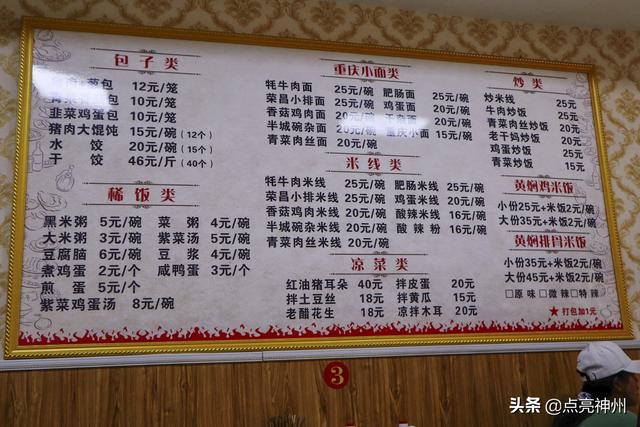 包子类
包 12元/笼
包 10元/笼
韭菜鸡蛋包 10元/笼
猪肉大馄饨 15元/碗(12个)
水饺 20元/碗(15个)
干饺 46元/斤(40个)
稀饭类
黑米粥 5元/碗 菜粥 4元/碗
大米粥 3元/碗 紫菜汤 5元/碗
豆腐脑 6元/碗 豆浆 4元/碗
煮鸡蛋 2元/个 咸鸭蛋 3元/个
煎蛋 5元/个
紫菜鸡蛋汤 8元/碗
重庆小面类
牦牛肉面 25元/碗 肥肠面 25元/碗
荣昌小排面 25元/碗 鸡蛋面 20元/碗
香菇鸡肉面 20元/碗 20元/碗
半城碗杂面 20元/碗 重庆小面 15元/碗
青菜肉丝面 20元/碗
米线类
牦牛肉米线 25元/碗 肥肠米线 25元/碗
荣昌小排米线 25元/碗 鸡蛋米线 20元/碗
香菇鸡肉米线 20元/碗 酸辣米线 16元/碗
半城碗杂米线 20元/碗 酸辣粉 16元/碗
青菜肉丝米线 20元/碗
凉菜类
红油猪耳朵 40元 拌皮蛋 20元
拌土豆丝 18元 拌黄瓜 15元
老醋花生 18元 凉拌木耳 20元
炒类
炒米线 25元
牛肉炒饭 25元
青菜肉丝炒饭 20元
老干妈炒饭 20元
鸡蛋炒饭 15元
青菜炒饭 15元
黄焖鸡米饭
小份25元+米饭2元/碗
大份35元+米饭2元/碗
黄焖排骨米饭
小份35元+米饭2元/碗
大份45元+米饭2元/碗
□原味□微辣□特辣
★打包加1元
3
头条 @点亮神州